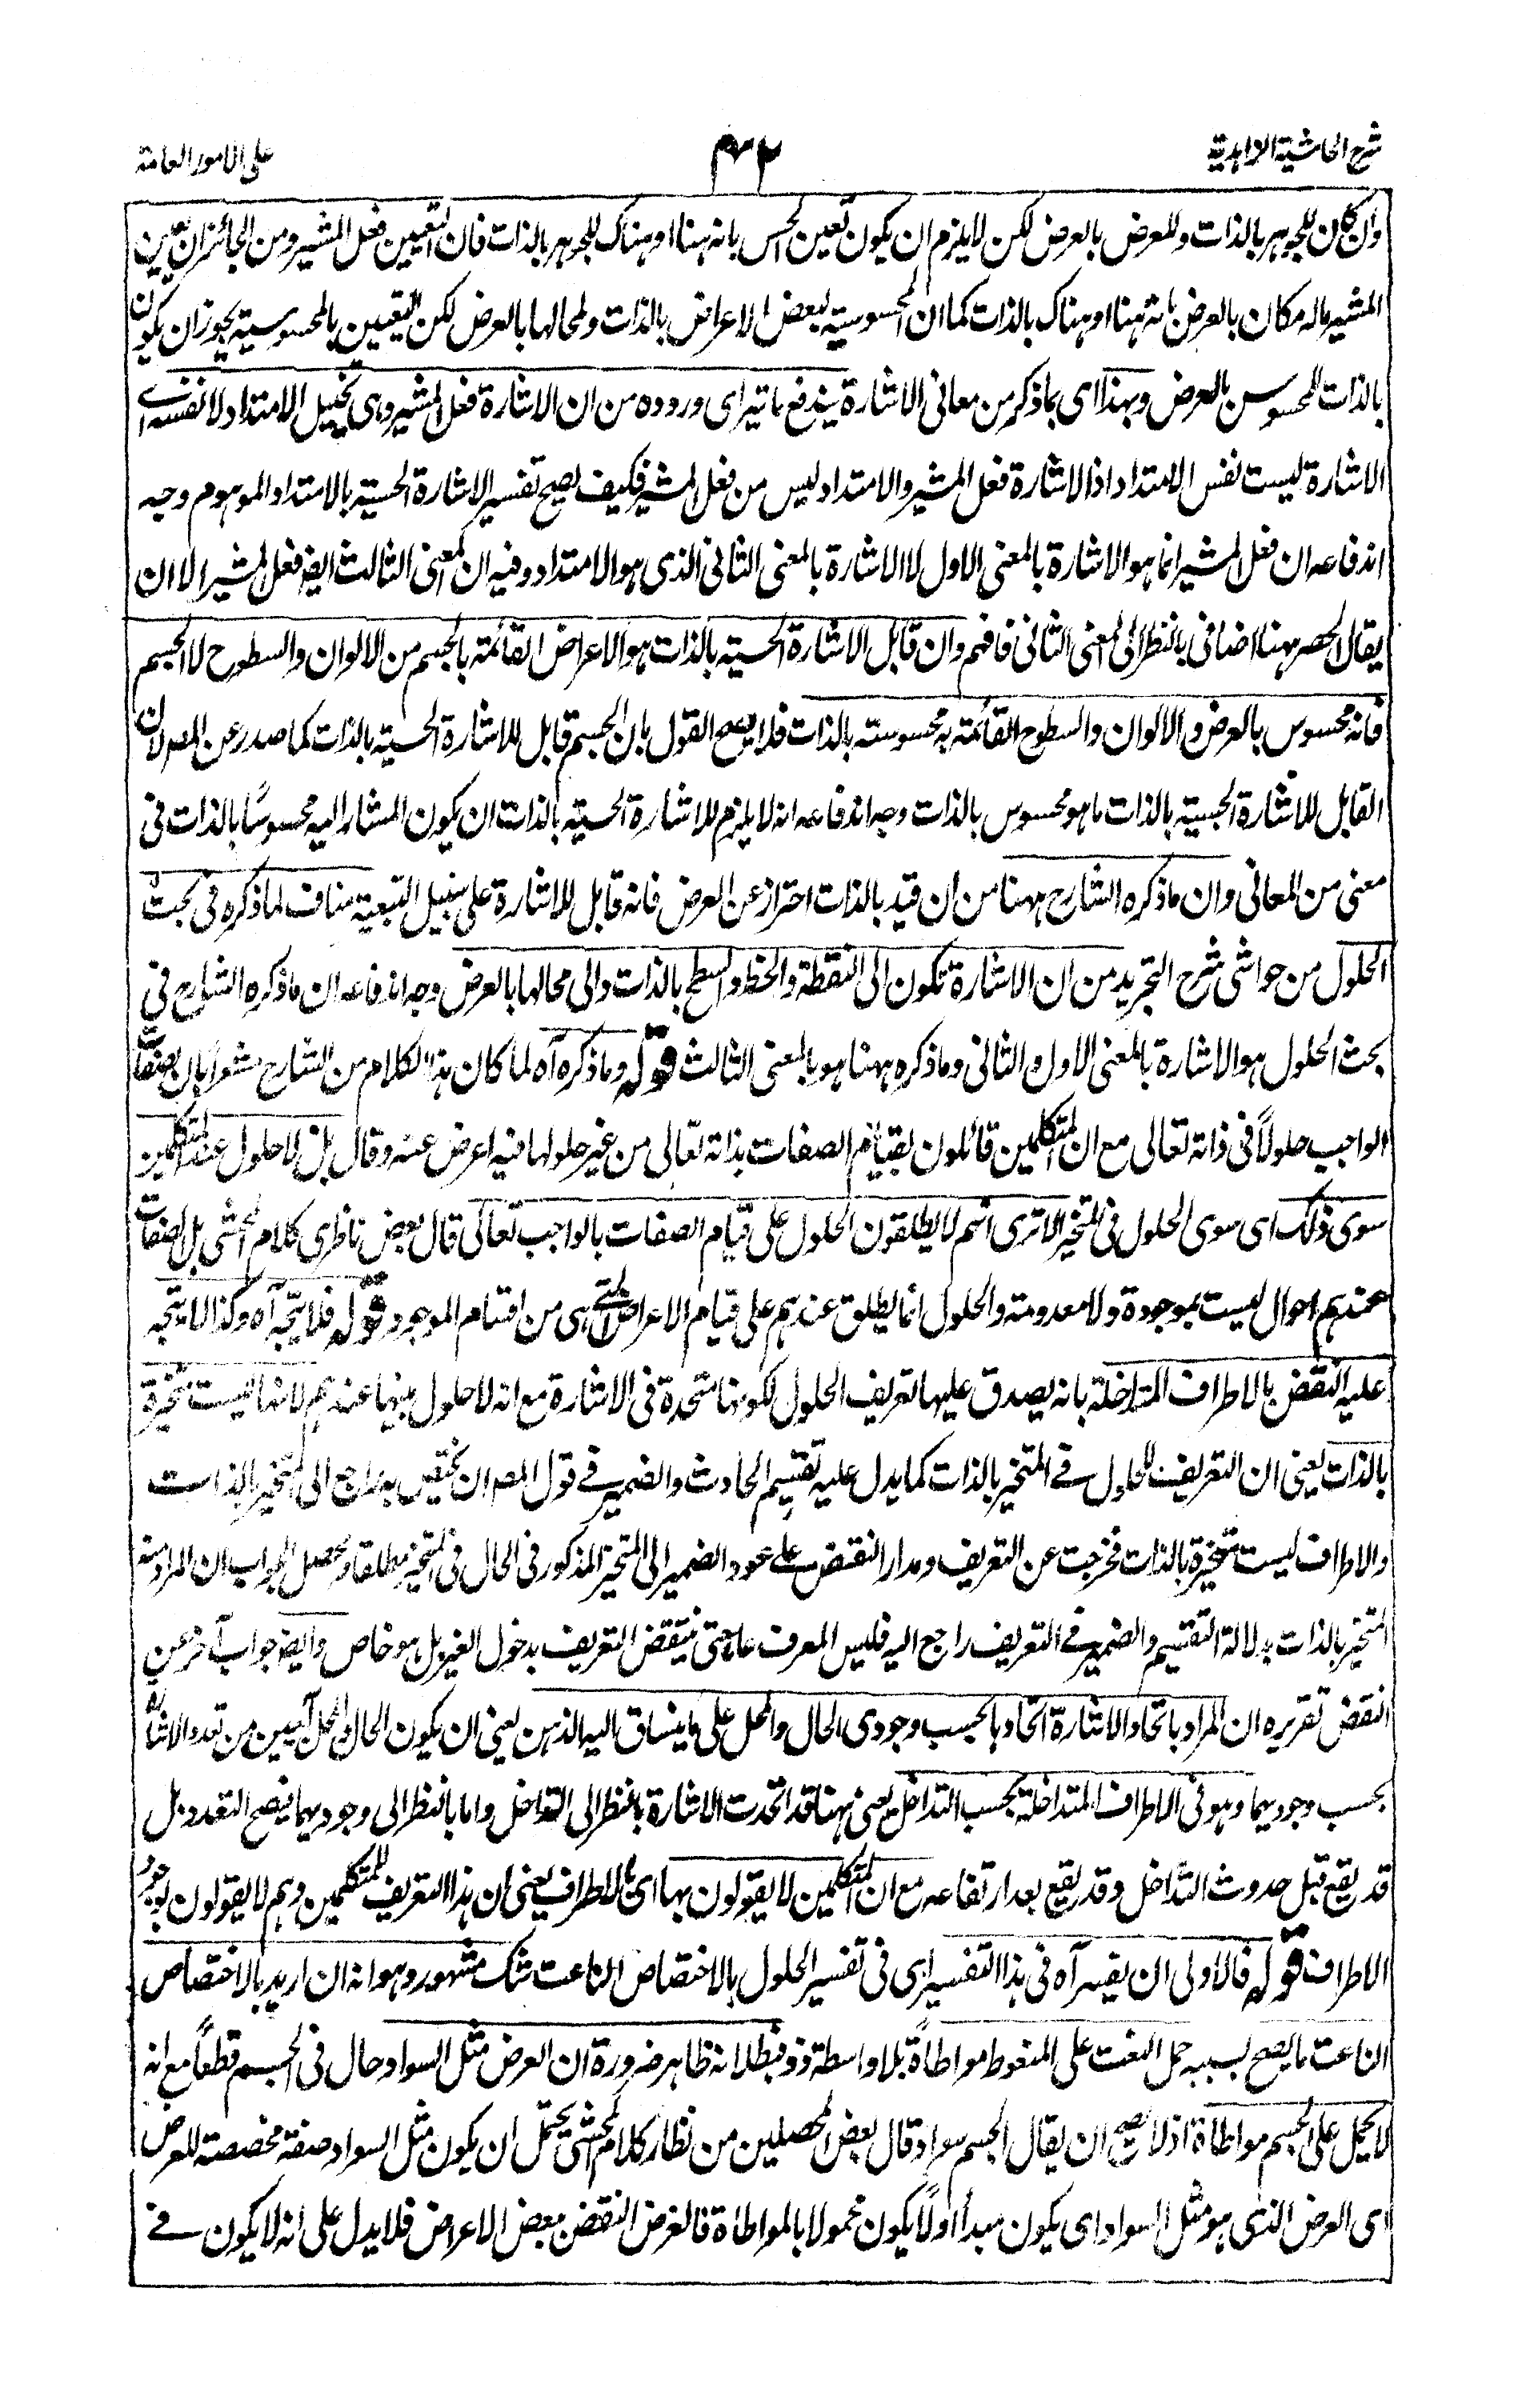 شرح الحاشية الزاهدية
٤٢
على الامور العامة
وان كان للجوهر بالذات وللعرض بالعرض لكن لا يلزم ان يكون تعين الحس بانه هنا او هناك للجوهر بالذات فان التعيين فعل المشير ومن الجائز ان يعين
المشير ماله مكان بالعرض بانه هنا او هناك بالذات كما ان المحسوسية لبعض الاعراض بالذات ولمحالها بالعرض لكن التعيين بالمحسوسية يجوز ان يكون
بالذات للمحسوس بالعرض وبهذا اى بما ذكر من معانى الاشارة يندفع ما تيراى وروده من ان الاشارة فعل المشير وهى تخييل الامتداد لا نفسه اے
الاشارة ليست نفس الامتداد اذ الاشارة فعل المشير والامتداد ليس من فعل المشير فكيف يصح تفسير الاشارة الحسية بالامتداد الموهوم وجه
اندفاعه ان فعل المشير انما هو الاشارة بالمعنى الاول لا الاشارة بالمعنى الثانى الذى هو الامتداد وفيه ان المعنى الثالث ايضا فعل المشير الا ان
يقال الحصر ههنا اضافى بالنظر الى المعنى الثانى فافهم وان قابل الاشارة الحسية بالذات هو الاعراض القائمة بالجسم من الالوان والسطوح لا الجسم
فانه محسوس بالعرض والالوان والسطوح القائمة به محسوسة بالذات فلا يصح القول بان الجسم قابل للاشارة الحسية بالذات كما صدر عن المصه لان
القابل للاشارة الحسية بالذات ما هو محسوس بالذات وجه اندفاعه انه لا يلزم للاشارة الحسية بالذات ان يكون المشار اليه محسوسًا بالذات فى
معنى من المعانى وان ما ذكره الشارح ههنا من ان قيد بالذات احتراز عن العرض فانه قابل للاشارة على سبيل التبعية مناف لما ذكره فى بحث
الحلول من حواشى شرح التجريد من ان الاشارة تكون الى النقطة والخط والسطح بالذات والى محالها بالعرض وجه اندفاعه ان ما ذكره الشارح فى
بحث الحلول هو الاشارة بالمعنى الاول والثانى وما ذكره ههنا هو بالمعنى الثالث قوله وما ذكره آه لما كان هذا الكلام من الشارح مشعرا بان لصفات
الواجب حلولاً فى ذاته تعالى مع ان المتكلمين قائلون بقيام الصفات بذاته تعالى من غير حلولها فيه اعرض عنه وقال بل لا حلول عند المتكلمين
سوى ذلك اى سوى الحلول فى المتحيز الا ترى انهم لا يطلقون الحلول على قيام الصفات بالواجب تعالى قال بعض ناظرى كلام المحشى بل الصفات
عندهم احوال ليست بموجودة ولا معدومة والحلول انما يطلق عندهم على قيام الاعراض التے هى من اقسام الموجود قوله فلا يتجه آه وكذا لا يتجه
عليه النقض بالاطراف المتداخلة بانه يصدق عليها تعريف الحلول لكونها متحدة فى الاشارة مع انه لا حلول بينها عندهم لانها ليست متحيزة
بالذات يعنى ان التعريف للحلول فے المتحيز بالذات كما يدل عليه تقسيم الحادث والضمير فے قول المصه ان يختص به راجع الى المتحيز بالذات
والاطراف ليست متحيزة بالذات فخرجت عن التعريف ومدار النقض على عود الضمير الى المتحيز المذكور فى الحال فى المتحيز مطلقا ومحصل الجواب ان المراد منه
المتحيز بالذات بدلالة التقسيم والضمير فے التعريف راجع اليه فليس المعرف عاما حتى ينتقض التعريف بدخول الغير بل هو خاص وايضا جواب آخر عن
النقض تقريره ان المراد باتحاد الاشارة اتحادها بحسب وجودى الحال والمحل على ما ينساق اليه الذهن يعنى ان يكون الحال والمحل آبيين من تعدد الاشارة
بحسب وجوديهما وهو فى الاطراف المتداخلة بحسب التداخل يعنى ههنا قد اتحدت الاشارة بالنظر الى التداخل واما بالنظر الى وجوديهما فيصح التعدد بل
قد يقع قبل حدوث التداخل وقد يقع بعد ارتفاعه مع ان المتكلمين لا يقولون بها اى بالاطراف يعنى ان هذا التعريف للمتكلمين وهم لا يقولون بوجود
الاطراف قوله فالاولى ان يفسر آه فى هذا التفسير اى فى تفسير الحلول بالاختصاص الناعت شك مشهور وهو انه ان اريد بالاختصاص
الناعت ما يصح بسببه حمل النعت على المنعوط مواطاةً بلا واسطة ذو فبطلانه ظاهر ضرورة ان العرض مثل السواد حال فى الجسم قطعًا مع انه
لا يحمل على الجسم مواطاة اذ لا يصح ان يقال الجسم سواد قال بعض المحصلين من نظار كلام المحشى يحتمل ان يكون مثل السواد صفة مخصصة للعرض
اى العرض الذى هو مثل السواد اى يكون مبدأ اولًا يكون محمولا بالمواطاة فالغرض النقض ببعض الاعراض فلا يدل على انه لا يكون فے